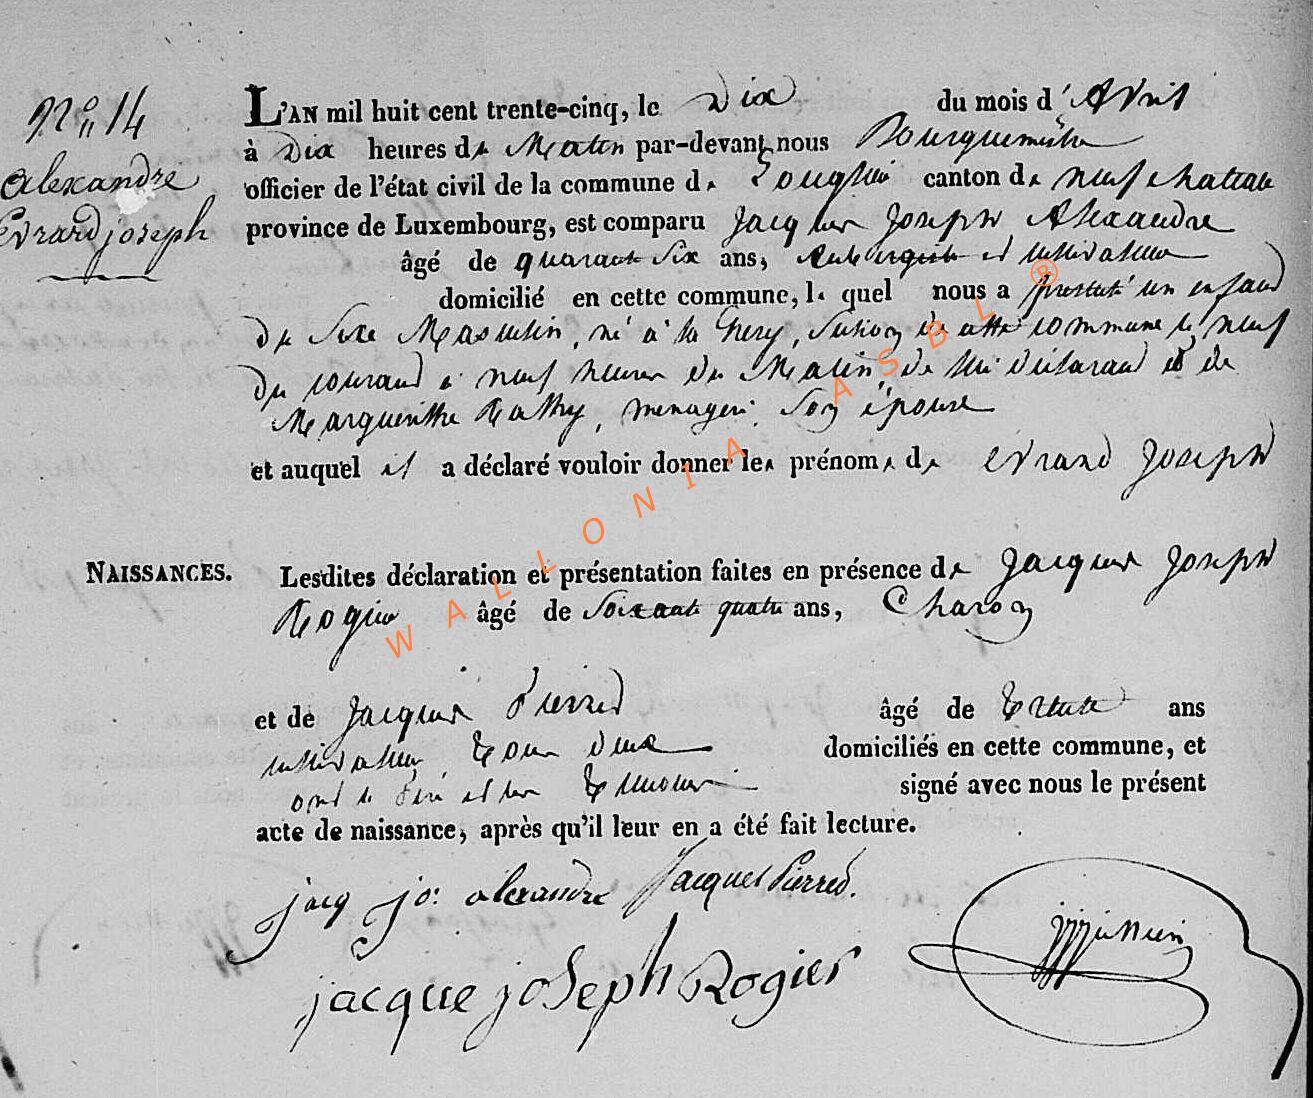 N° 14
alexandre
Evrard joseph
L'AN mil huit cent trente-cinq, le Dix du mois d'Avril
à Dix heures du Matin par-devant nous Bourguemestre
officier de l'état civil de la commune de Longlier canton de neufchateau
province de Luxembourg, est comparu Jacques Joseph Alexandre
âgé de quarante Six ans, aubergiste et cultivateur
domicilié en cette commune, le quel nous a presenté un enfant
du Sexe Masculin, né à la Ghery, Section de cette commune le neuf
du courant à neuf heures du Matin, de lui déclarant et de
Marguerithe Rathy, menagere, Son épouse
et auquel il a déclaré vouloir donner les prénoms de evrard Joseph
NAISSANCES.
Lesdites déclaration et présentation faites en présence de Jacques Joseph
Rogier âgé de Soixante quatre ans, Charon
et de Jacques Pierred âgé de Trente ans
cultivateur, Tous deux domiciliés en cette commune, et
ont le Père et les Temoins signé avec nous le présent
acte de naissance, après qu'il leur en a été fait lecture.
jacq jo: alexandre Jacques Pierred.
jacque joseph Rogier
WALLONIA ASBL ®